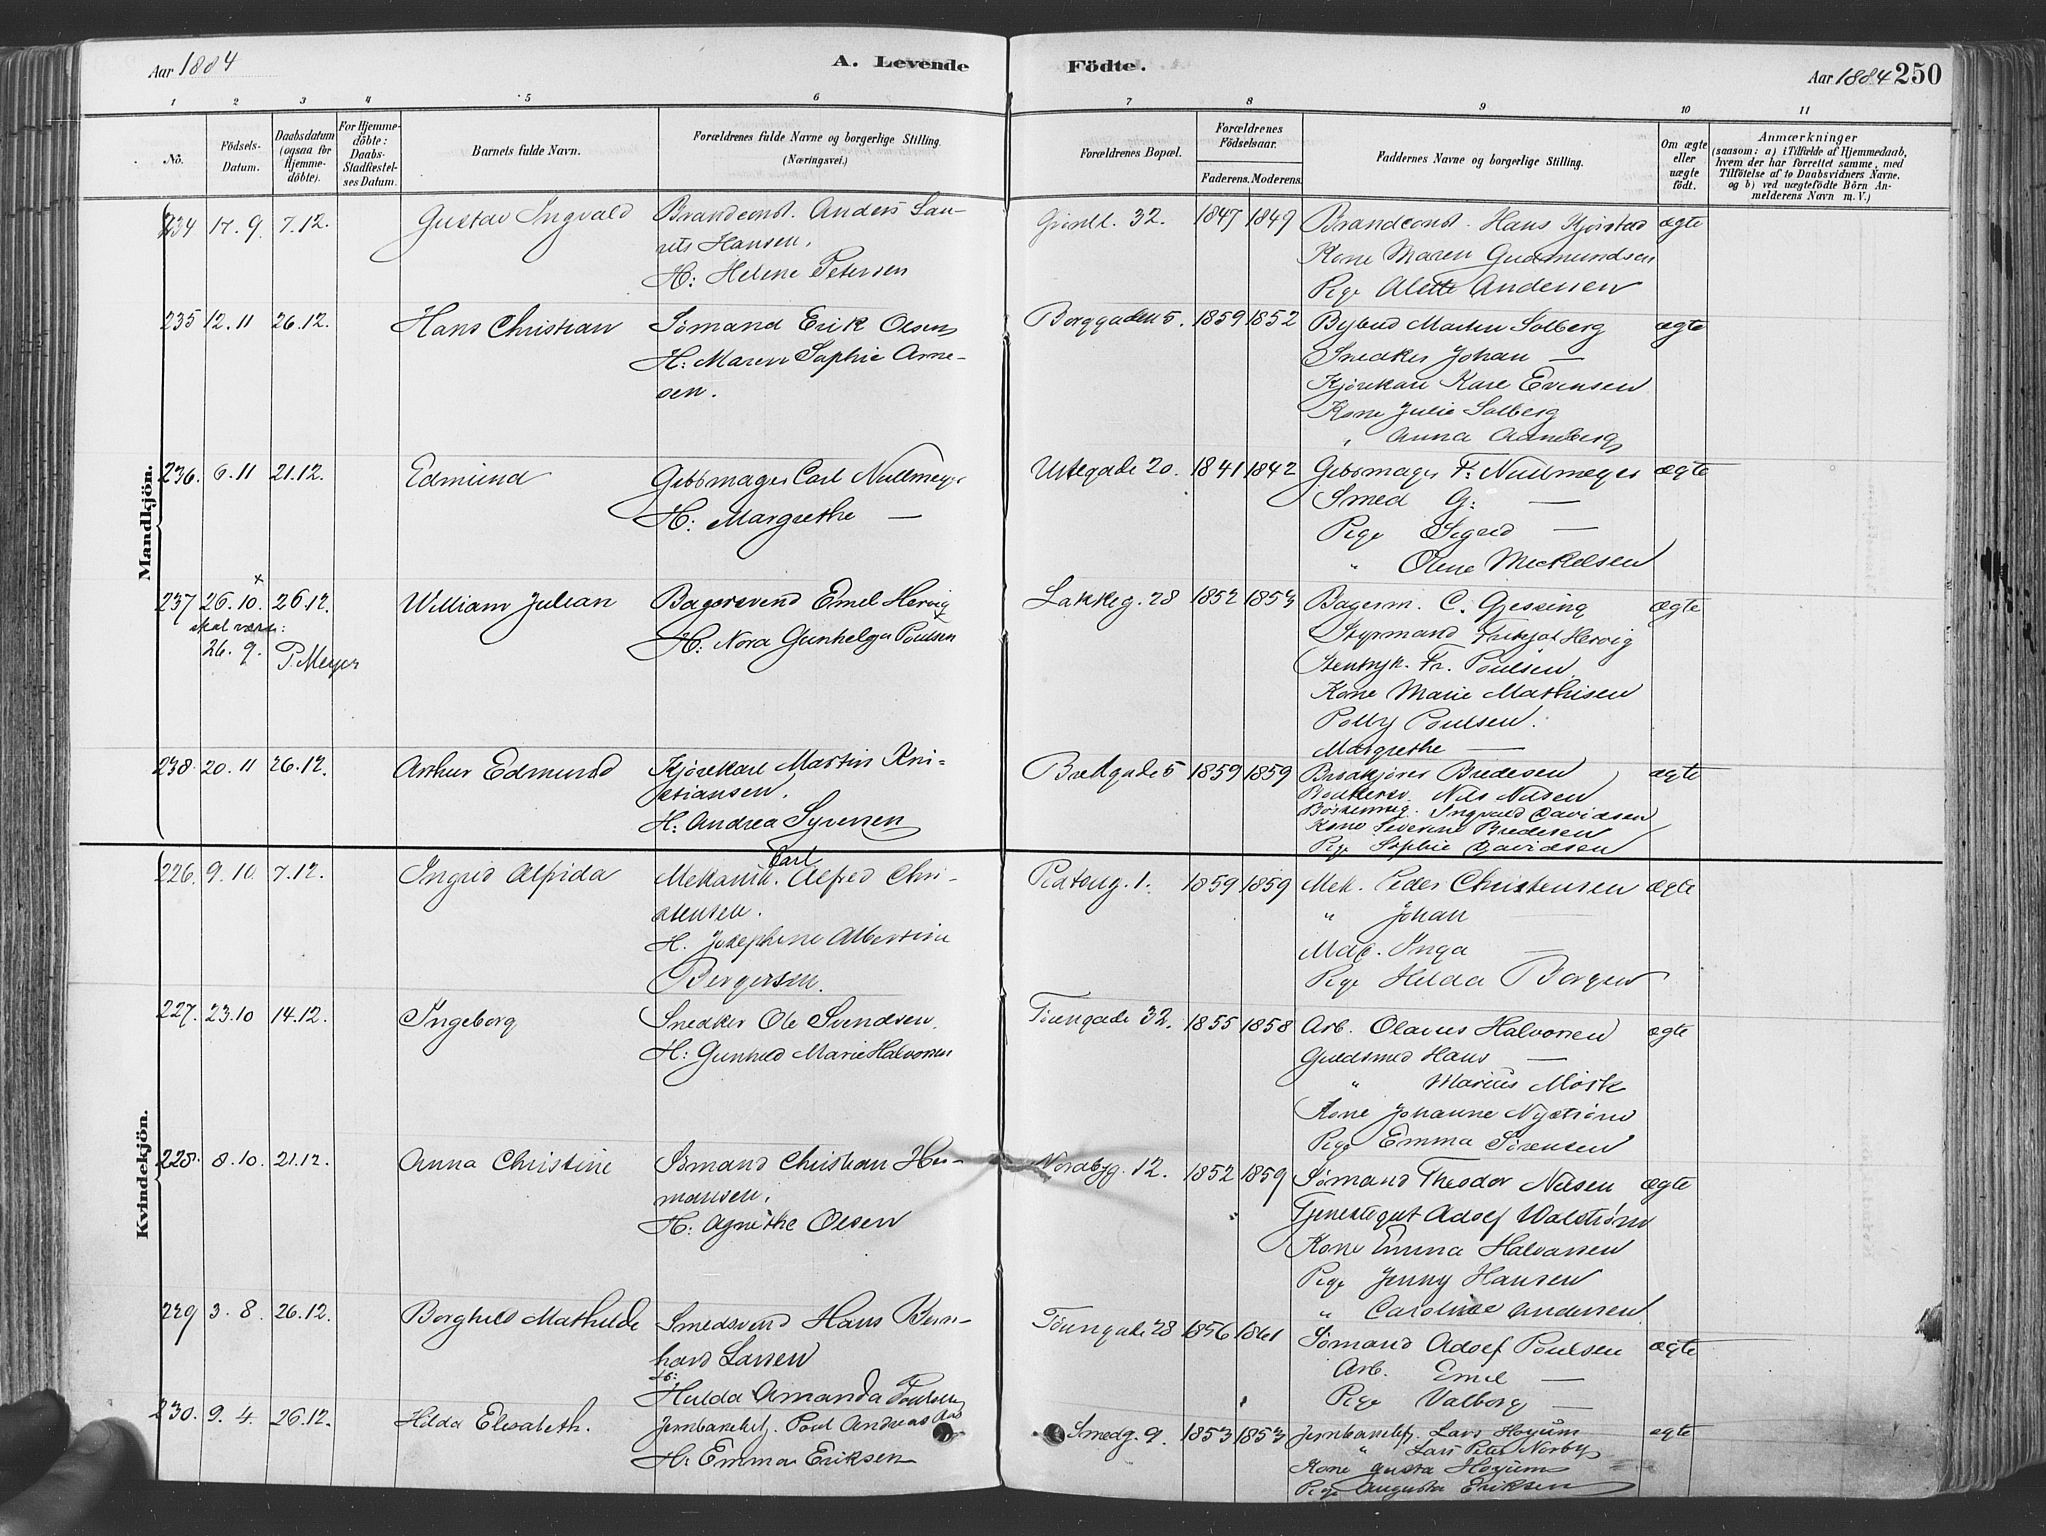 Aar 1884
A. Levende Födte.
Aar 1884 250
1 2 3 4 5 6 7 8 9 10 11
No.
Födsels-Datum.
Daabsdatum (ogsaa for Hjemme-döbte).
For Hjemme-döbte: Daabs-Stadfæstel-ses Datum.
Barnets fulde Navn.
Forældrenes fulde Navne og borgerlige Stilling.
(Næringsvei.)
Forældrenes Bopæl.
Forældrenes Födselsaar.
Faderens. Moderens.
Faddernes Navne og borgerlige Stilling.
Om ægte eller uægte födt.
Anmærkninger
(saasom: a) i Tilfælde af Hjemmedaab,
hvem der har forrettet samme, med
Tilföielse af to Daabsvidners Navne,
og b) ved uægtefödte Börn An-
melderens Navn m. V.)
Mandkjön.
234 17.9. 7.12. Gustav Ingvald Brandconst. Anders Lau- Grönl. 32. 1847 1849 Brandconst. Hans Kjørstad ægte
rits Hansen. Kone Maren Gudmundsen
H: Helene Petersen Pige Alette Andersen
235 12.11 26.12. Hans Christian Sømand Erik Olsen Borggaden 5. 1859 1852 Bybud Martin Solberg ægte
H: Maren Sophie Arne- Snedker Johan —
sen. Kjørekarl Karl Evensen
Kone Julie Solberg
" Anna Aaneberg
236. 6.11 21.12. Edmund Gibsmager Carl Nullmeyer Urtegade 20. 1841 1842 Gibsmager F. Nullmeyer ægte
H: Margrethe — Smed G: —
Pige Sigrid —
" Oline Mickelsen
237 26.10. × 26.12. William Julian Bagersvend Emil Hervig Lakkeg. 28 1852 1853 Bagerm. C. Gjessing ægte
skal være: H. Nora Gunhelga Poulsen Styrmand Fritjof Hervig
26.9. P. Meyer Stentryk. Fr. Poulsen
Kone Marie Mathisen
Polly Poulsen.
Margrethe —
238. 20.11 26.12. Arthur Edmund Kjørekarl Martin Kri- Bredgade 5 1859 1859 Bredesen ægte
stiansen. Nils Nilsen
H: Andrea Syversen Ingvald Davidsen
Kone Severine Bredesen
Pige Sophie Davidsen
Kvindekjön.
226. 9.10. 7.12. Ingrid Alfrida Mekanik. Carl Alfred Chri- Platoug. 1. 1859 1859 Mek. Peder Christensen ægte
stensen. " Johan —
H. Josephine Albertine Mdb. Inga —
Bergersen. Pige Hilda Borgen
227. 23.10 14.12. Ingeborg Snedker Ole Svendsen. Tøiengade 32. 1855 1858 Arb. Olavus Halvorsen ægte
H: Gunhild Marie Halvorsen Guldsmed Hans —
" Marius Mørk
Kone Johanne Nystrøm
Pige Emma Sørensen
228. 8.10. 21.12. Anna Christine Sømand Christian Her- Nordbyg. 12. 1852 1859 Sømand Theodor Nilsen ægte
mansen. Tjenestegut Adolf Walstrøm
H: Agnethe Olsen Kone Emma Halvorsen
Pige Jenny Hansen
" Caroline Andersen
229 3.8. 26.12. Borghild Mathilde Smedsvend Hans Bern- Tøiengade 28 1856 1861 Sømand Adolf Poulsen ægte
hard Larsen Arb. Emil —
H: Hulda Amanda Poulsen Pige Valborg —
230. 9.4. 26.12. Hilda Elisabeth. Jernbanebetj. Poul Andreas Aas Smedg. 9. 1853 1853 Jernbanebetj. Lars Høyum ægte
H: Emma Eriksen " Lars Peter Norby
Kone Gusta Høyum
Pige Augusta Eriksen